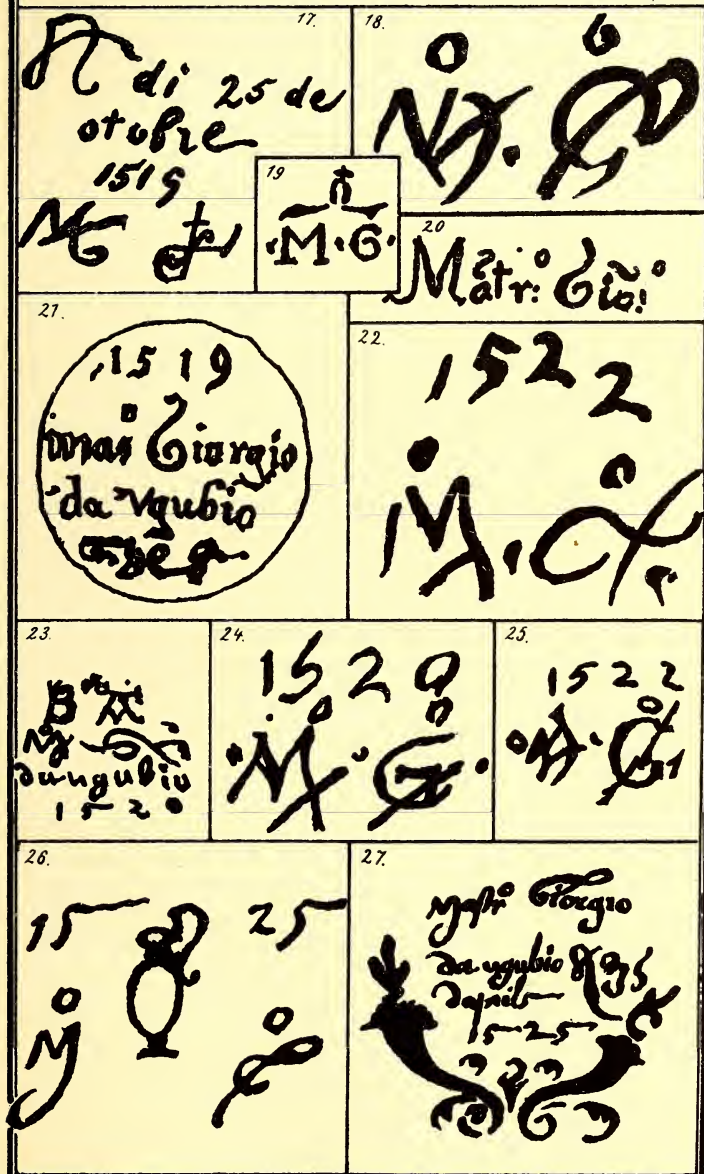 17.
A di 25 de
otobre
1519
M G
18.
o o
M. G
19
·M·G·
20
Matr:º Gio:º
21.
1519
Giorgio
da vgubio
22.
1522
M. G
23.
Mº
da ugubio
1520
24.
1520
M G
25.
1522
M G
26.
15 25
M G
27.
Mastrº Giorgio
da ugubio
daprile
1525